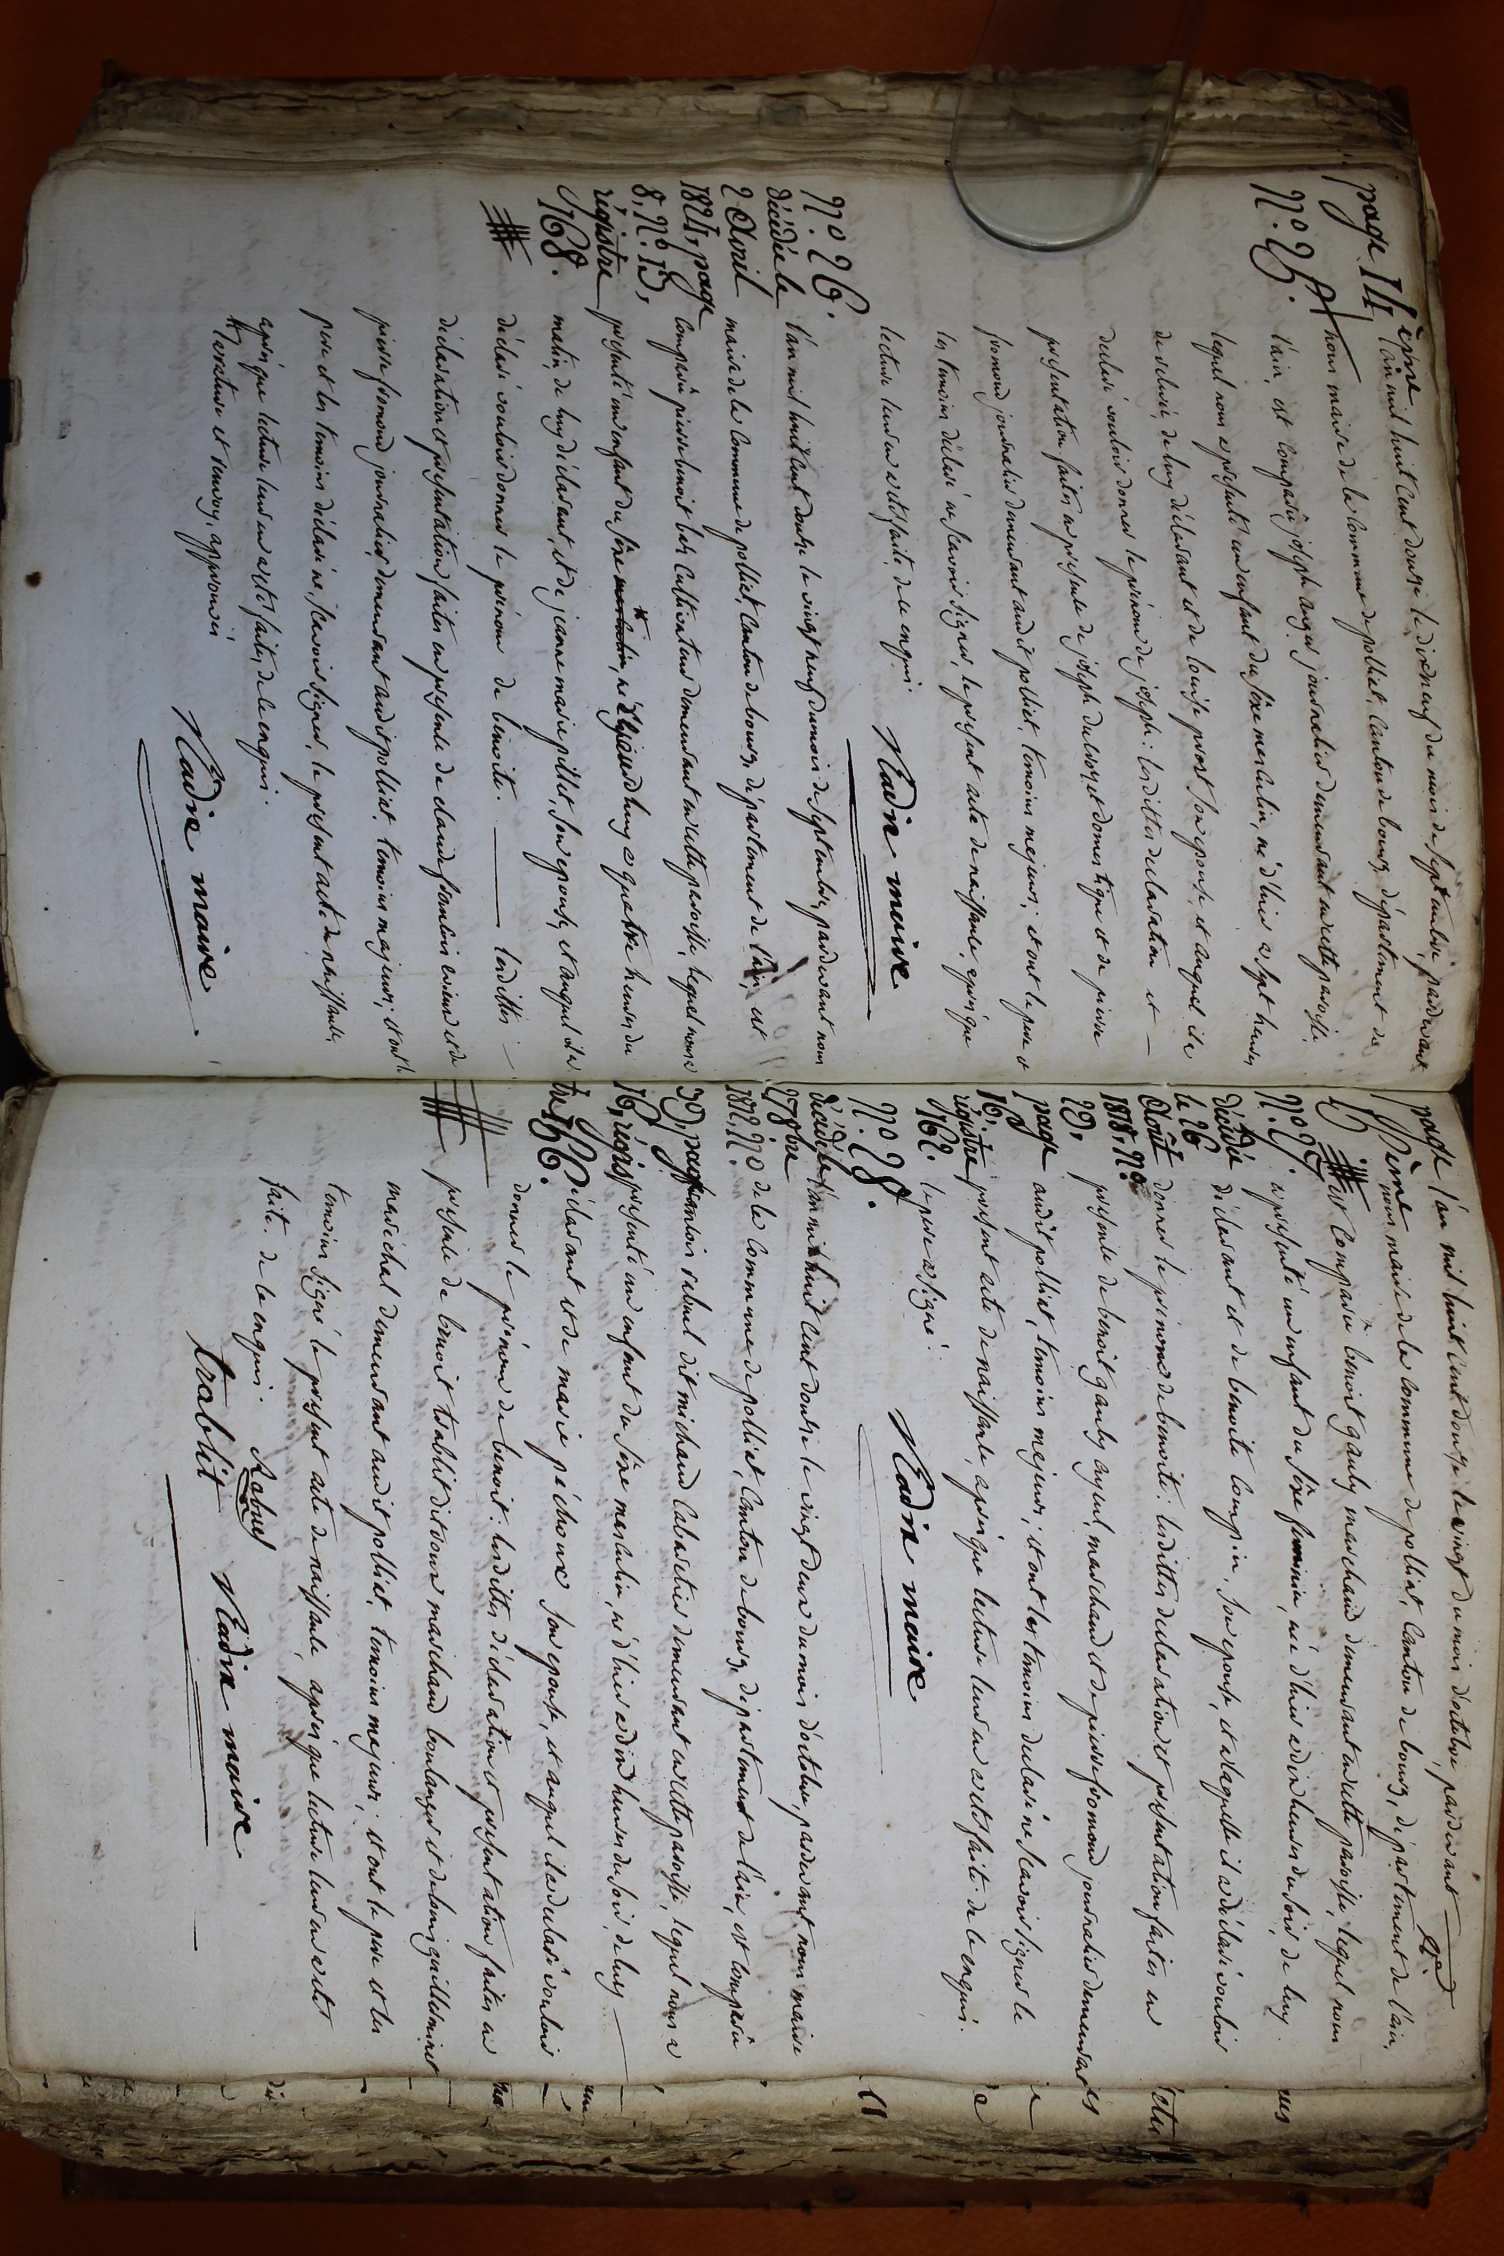 page 14ème
N.° 25.
l'an mil huit cent douze le dixneuf du mois de septembre, pardevant
nous maire de la commune de polliat, canton de bourg, département de
l'ain, est comparu joseph anger journalier demeurant en cette paroisse
lequel nous a présenté un enfant du sexe masculin, né d'hier a sept heures
de soluy déclarant et de louise prost son epouse, et auquel il a
déclaré vouloir donner le prénom de joseph: lesdittes déclaration et
présentation faites en présence de joseph domestique et de pierre
fromond journalier demeurant audit polliat, temoins majeurs; et ont le pere et
les temoins déclaré ne scavoir signer, le présent acte de naissance, après que
lecture leur en a eté faite de ce enquis.
Nadin maire
N.° 26.
décédée le
2 Avril
1824, page
8, N.° 15,
régistre
N68.
l'an mil huit cent douze le vingt neuf du mois de septembre, pardevant nous
maire de la commune de polliat, canton de bourg, département de l'ain, est
comparu pierre benoit cultivateur demeurant en cette paroisse, lequel nous a
présenté un enfant du sexe né d'aujourdhuy a quatre heures du
matin, de luy déclarant, et de jeanne marie pillet, son epouse, et auquel il a
déclaré vouloir donner le prénom de benoite. lesdittes
déclaration et présentation faites en présence de claude et de
pierre fromond journalier, demeurant audit polliat, temoins majeurs; et ont le
pere et les temoins déclaré ne scavoir signer, le présent acte de naissance
après que lecture leur en a eté faite, de ce enquis.
rature et renvoy, approuvés
Nadin maire
page
15ème
N.° 27.
décédée
le 26
Août
1818, N.°
29,
page
16,
régistre
N62.
l'an mil huit cent douze le vingt du mois d'octobre, pardevant
nous maire de la commune de polliat, canton de bourg, département de l'ain,
est comparu benoit gauly marchand demeurant en cette paroisse, lequel nous
a présenté un enfant du sexe feminin, née d'hier a dix heures du soir, de luy
déclarant et de benoite son epouse, et a laquelle il a déclaré vouloir
donner le prénom de benoite: lesdittes déclaration et présentation faites en
présence de benoit gauly ayeul, marchand et de pierre fromond journalier demeurant
audit polliat, temoins majeurs; et ont les temoins déclaré ne scavoir signer le
présent acte de naissance, après que lecture leur en a eté faite de ce enquis.
le pere a signé.
Nadin maire
N.° 28.
décédé le
27 8bre
1812, N.°
39, page
16, régis
tre N56.
l'an mil huit cent douze le vingt deux du mois d'octobre, pardevant nous maire
de la commune de polliat, canton de bourg, département de l'ain, est comparu
rabuel dit michaud cabaretier demeurant en cette paroisse, lequel nous a
présenté un enfant du sexe masculin, né d'hier a dix heures du soir, de luy
déclarant et de marie péchoux son epouse, et auquel il a déclaré vouloir
donner le prénom de benoit: lesdittes déclaration et présentation faites en
présence de benoit trablit dit marchand boulanger et de
marechal demeurant audit polliat, temoins majeurs; et ont le pere et les
temoins signé le présent acte de naissance, après que lecture leur en a eté
faite. de ce enquis.
Rabuel
Nadin maire
trablit